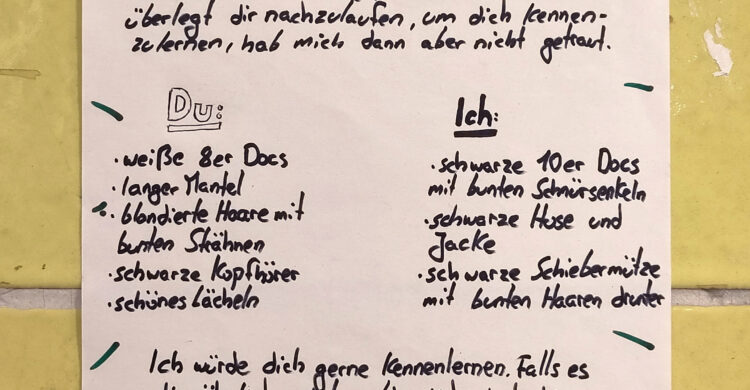 überlegt dir nachzulaufen, um dich kennen-
zulernen, hab mich dann aber nicht getraut.
Du:
· weiße 8er Docs
· langer Mantel
· blondierte Haare mit
bunten Strähnen
· schwarze Kopfhörer
· schönes Lächeln
Ich:
· schwarze 10er Docs
mit bunten Schnürsenkeln
· schwarze Hose und
Jacke
· schwarze Schiebermütze
mit bunten Haaren drunter
Ich würde dich gerne kennenlernen. Falls es